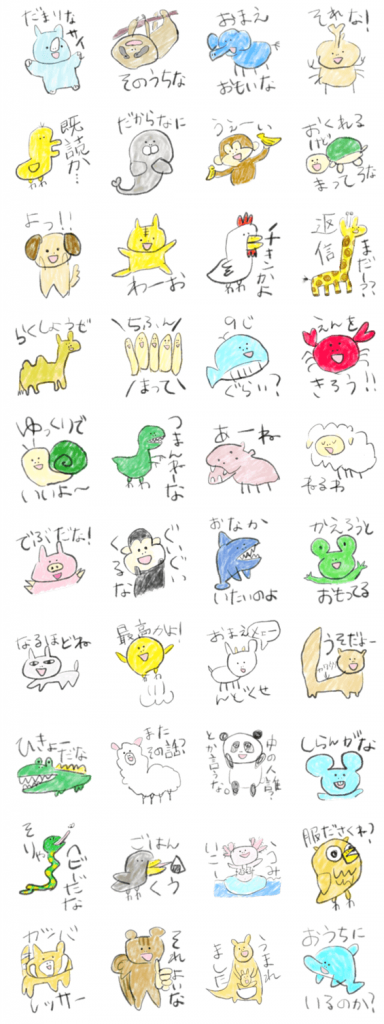 だまりな
サイ
そのうちな
おまえ
おもいな
それな！
既読か…
だからなに
うぇーい
おくれる
まってろな
よっ!!
わーお
チキンかよ
返信
まだ??
らくしょうぜ
＼ちぶん／
／まって＼
9じ
ぐらい？
えんを
きろう!!
ゆっくりで
いいよ〜
つまんねーな
あーね
ねるわ
でぶだな！
ぐいぐい
くるな
おなか
いたいのよ
かえろうと
おもってる
なるほどね
最高かよ！
おまえ
んどくせ
うそだよー
ひきょーだな
また
その話？
ゆの人誰？
とか言うな。
しらんがな
そりゃ
ヘビーだな
ごはん
くう
うみ
いこー
服ださくね？
ガンバ
レッサー
それよいな
うまれ
ました
おうちに
いるのか？